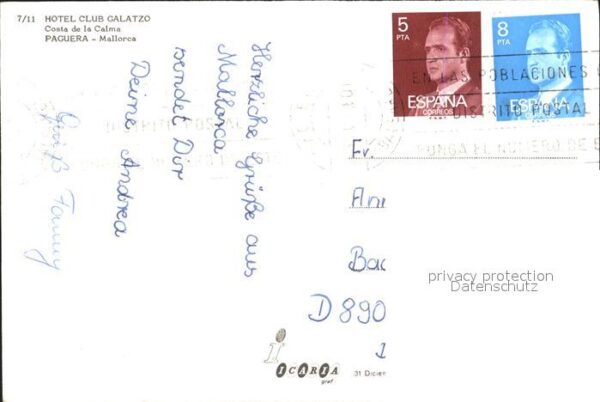 7/11 HOTEL CLUB GALATZO
Costa de la Calma
PAGUERA - Mallorca
Herzliche Grüße aus
Mallorca
sendet Dir
Deine Andrea
Gruß Fanny
5
PTA
ESPAÑA
CORREOS
8
PTA
ESPAÑA
EN LAS POBLACIONES
DISTRITO POSTAL
PONGA EL NUMERO DE
Fr.
An
Bac
D 890
1
privacy protection
Datenschutz
i
ICARIA
graf
31 Dicier